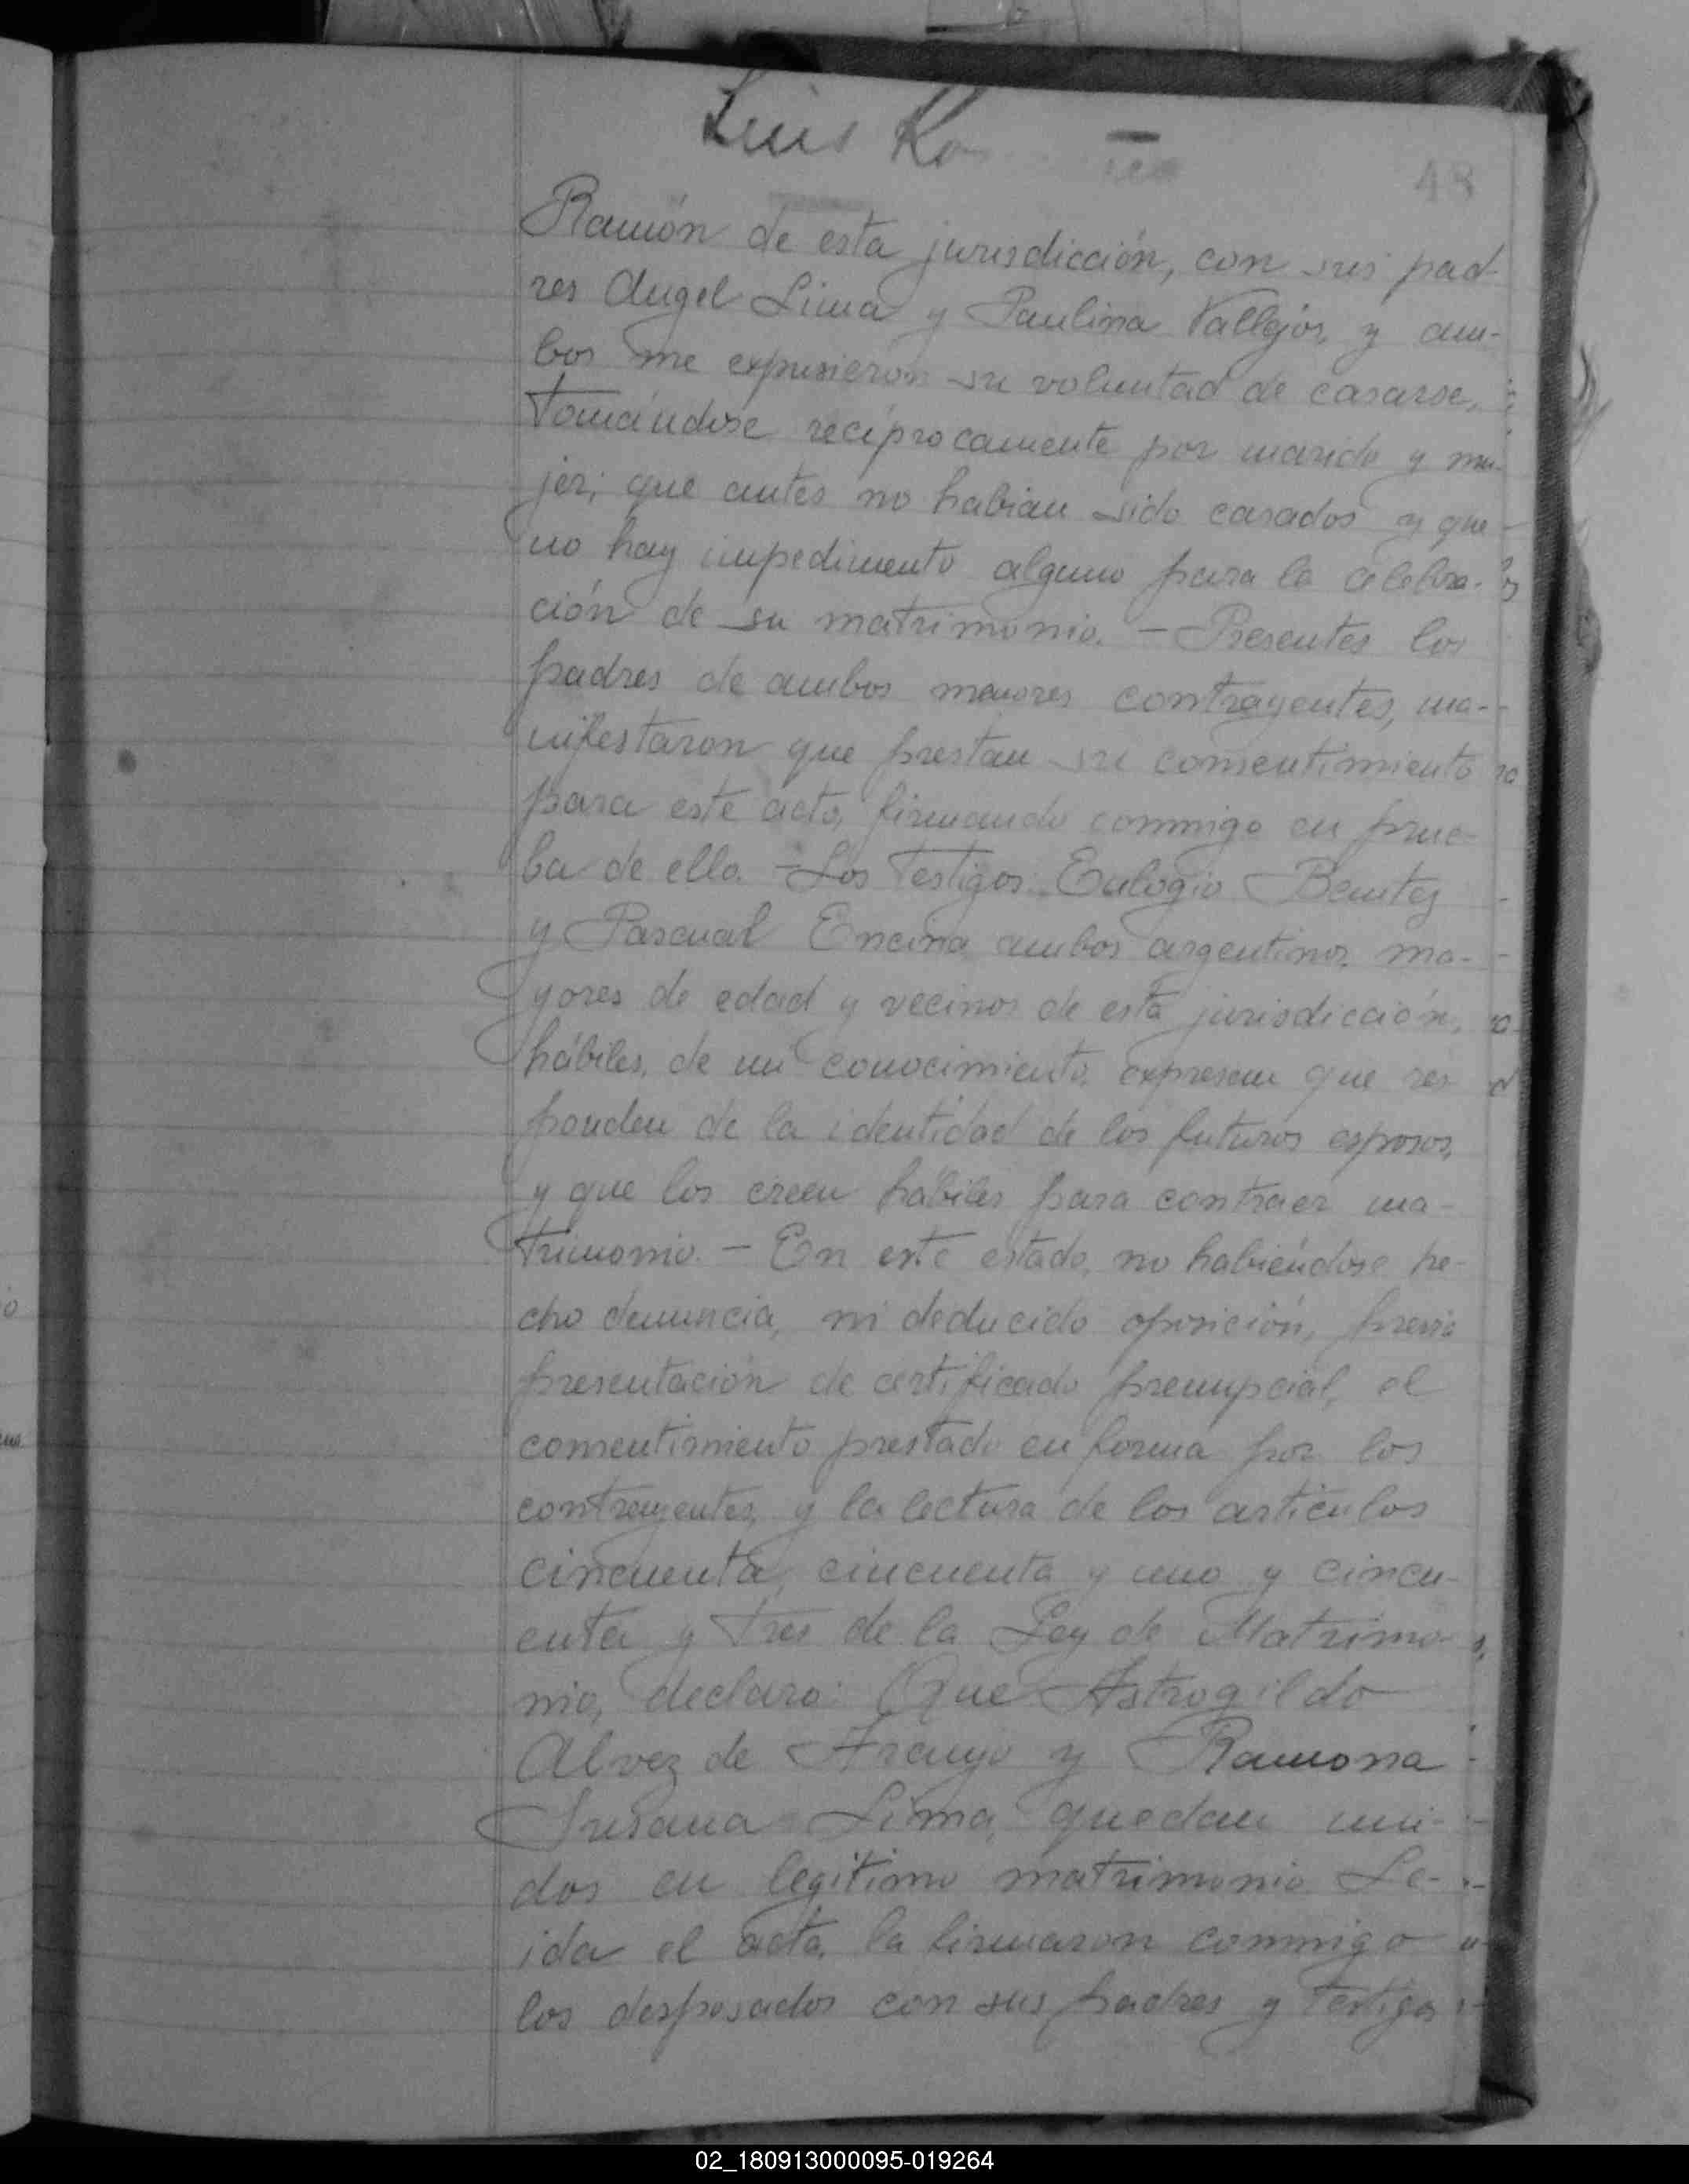 Luis Ro
48
Ramón de esta jurisdicción, con sus pad-
res Angel Lima y Paulina Vallejos, y am-
bos me expusieron su voluntad de casarse,
tomándose recíprocamente por marido y mu-
jer; que antes no habian sido casados y que
no hay impedimento alguno para la celebra-
ción de su matrimonio. - Presentes los
padres de ambos menores contrayentes, ma-
nifestaron que prestan su consentimiento
para este acto, firmando conmigo en prue-
ba de ello. - Los testigos Eulogio Benitez
y Pascual Encina ambos argentinos, ma-
yores de edad y vecinos de esta jurisdicción,
hábiles, de mi conocimiento, expresan que res
ponden de la identidad de los futuros esposos,
y que los creen hábiles para contraer ma-
trimonio. - En este estado, no habiéndose he-
cho denuncia, ni deducido oposición, previa
presentación de certificado prenupcial, el
consentimiento prestado en forma por los
contrayentes, y la lectura de los artículos
cincuenta, cincuenta y uno y cincu-
enta y tres de la Ley de Matrimo-
nio, declaro: Que Astrogildo
Alvez de Araujo y Ramona
Susana Lima, quedan uni-
dos en legitimo matrimonio. Le-
ida el acta, la firmaron conmigo
los desposados con sus padres y testigos
02_180913000095-019264